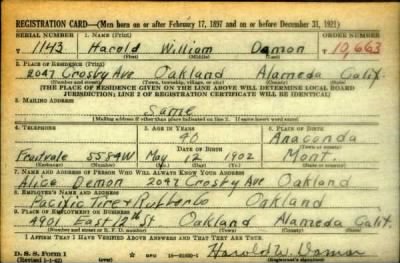 REGISTRATION CARD—(Men born on or after February 17, 1897 and on or before December 31, 1921)
SERIAL NUMBER 1. NAME (Print) ORDER NUMBER
T 1143 Harold William Damon T 10,663
(First) (Middle) (Last)
2. PLACE OF RESIDENCE (Print)
2047 Crosby Ave Oakland Alameda Calif.
(Number and street) (Town, township, village, or city) (County) (State)
[THE PLACE OF RESIDENCE GIVEN ON THE LINE ABOVE WILL DETERMINE LOCAL BOARD
JURISDICTION; LINE 2 OF REGISTRATION CERTIFICATE WILL BE IDENTICAL]
3. MAILING ADDRESS
Same
[Mailing address if other than place indicated on line 2. If same insert word same]
4. TELEPHONE 5. AGE IN YEARS 6. PLACE OF BIRTH
40 Anaconda
DATE OF BIRTH (Town or county)
Fruitvale 5584W May 12 1902 Mont.
(Exchange) (Number) (Mo.) (Day) (Yr.) (State or country)
7. NAME AND ADDRESS OF PERSON WHO WILL ALWAYS KNOW YOUR ADDRESS
Alice Demon 2047 Crosby Ave Oakland
8. EMPLOYER'S NAME AND ADDRESS
Pacific Tire & Rubber Co Oakland
9. PLACE OF EMPLOYMENT OR BUSINESS
4901 East St Oakland Alameda Calif.
(Number and street or R. F. D. number) (Town) (County) (State)
I AFFIRM THAT I HAVE VERIFIED ABOVE ANSWERS AND THAT THEY ARE TRUE.
D. S. S. Form 1
(Revised 1-1-42) Harold W. Damon
(Registrant's signature)